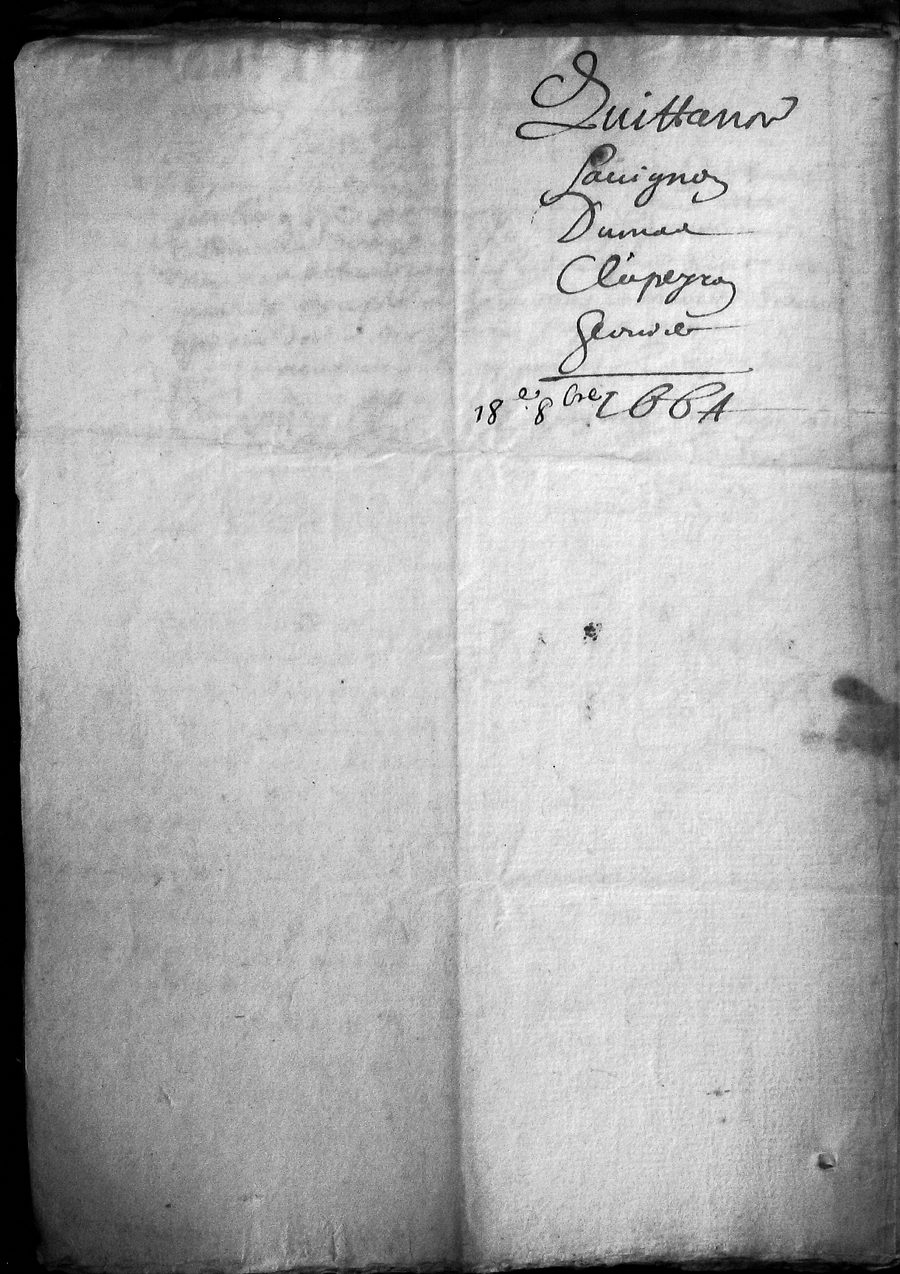 Quittance
Lauigne
Dumas
Clapeyro
18e 8bre 1664